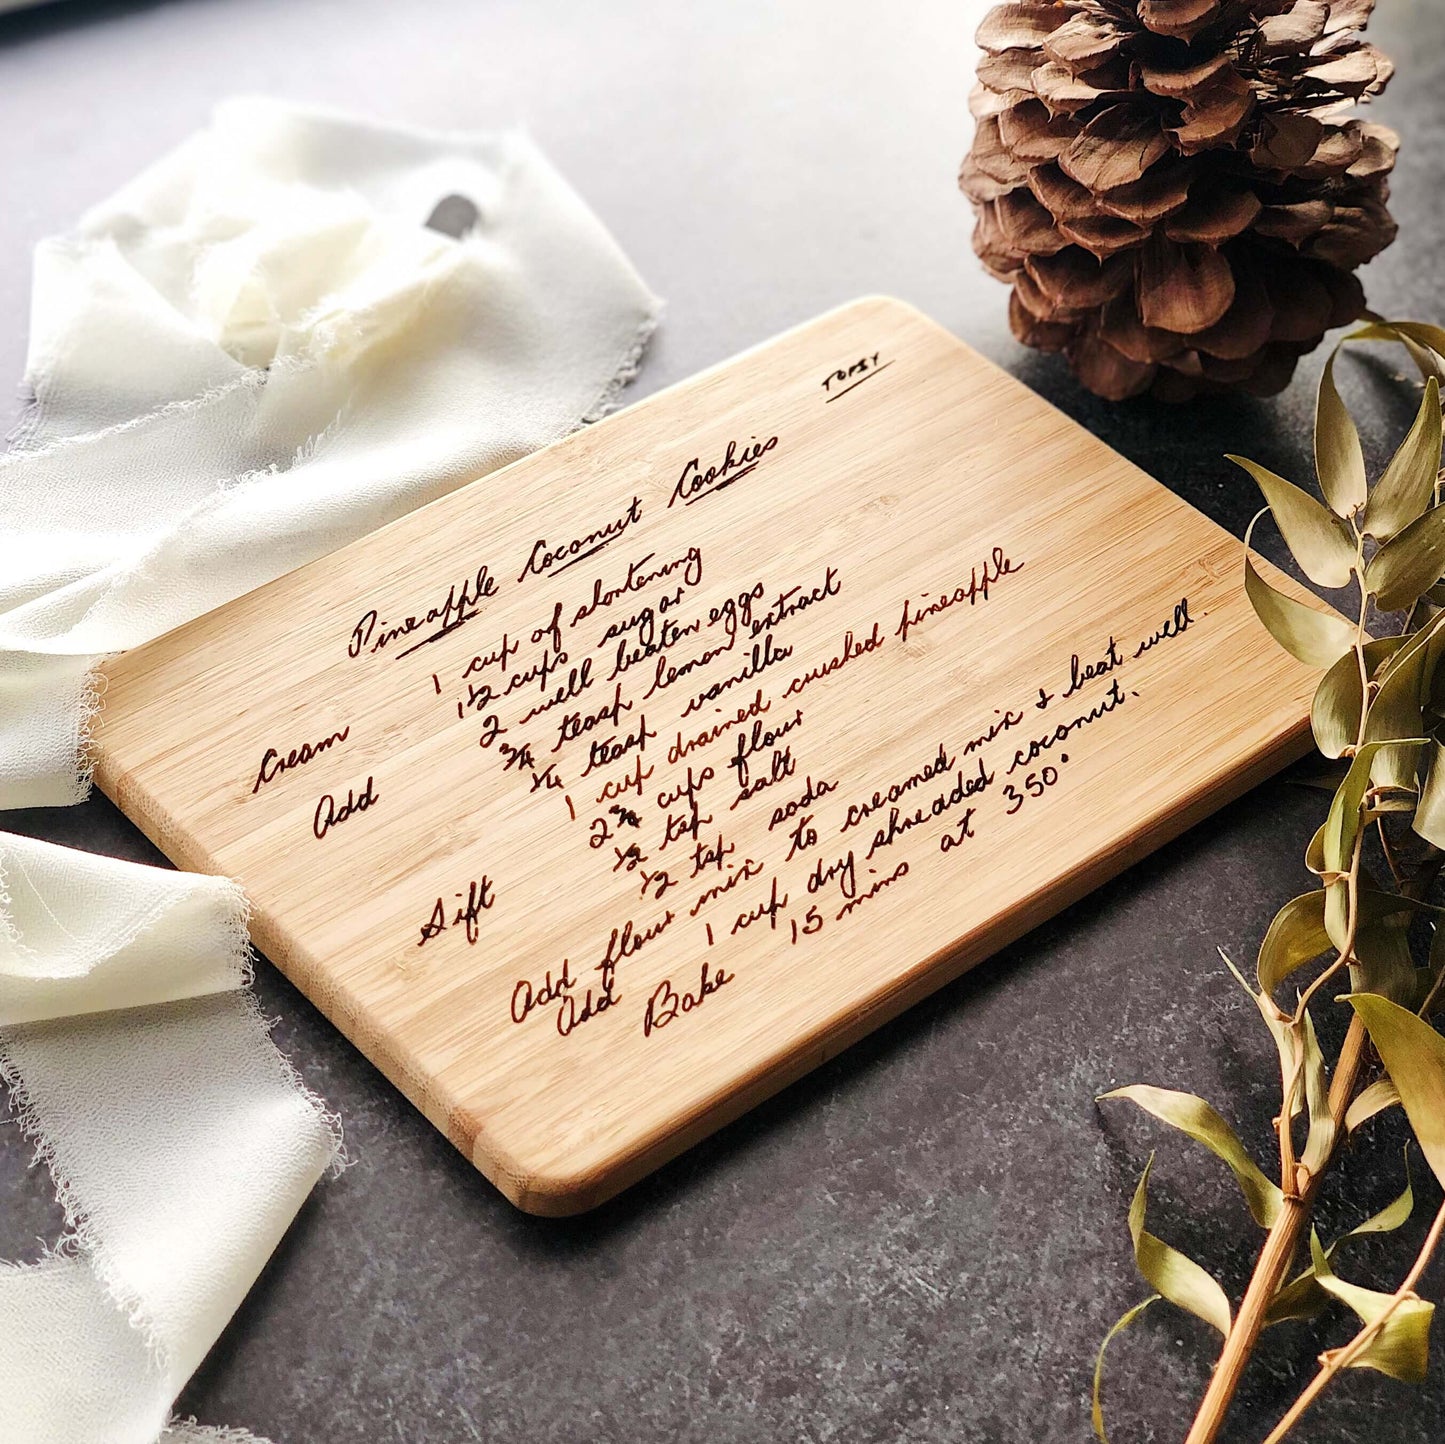 TOPSY
Pineapple Coconut Cookies
1 cup of shortening
Cream 1 1/2 cups sugar
Add 2 well beaten eggs
3/4 teasp lemon extract
1/4 teasp vanilla
1 cup drained crushed pineapple
Sift 2 3/4 cups flour
1/2 tsp salt
1/2 tsp soda
Add flour mix to creamed mix & beat well.
Add 1 cup dry shreaded coconut.
Bake 15 mins at 350°